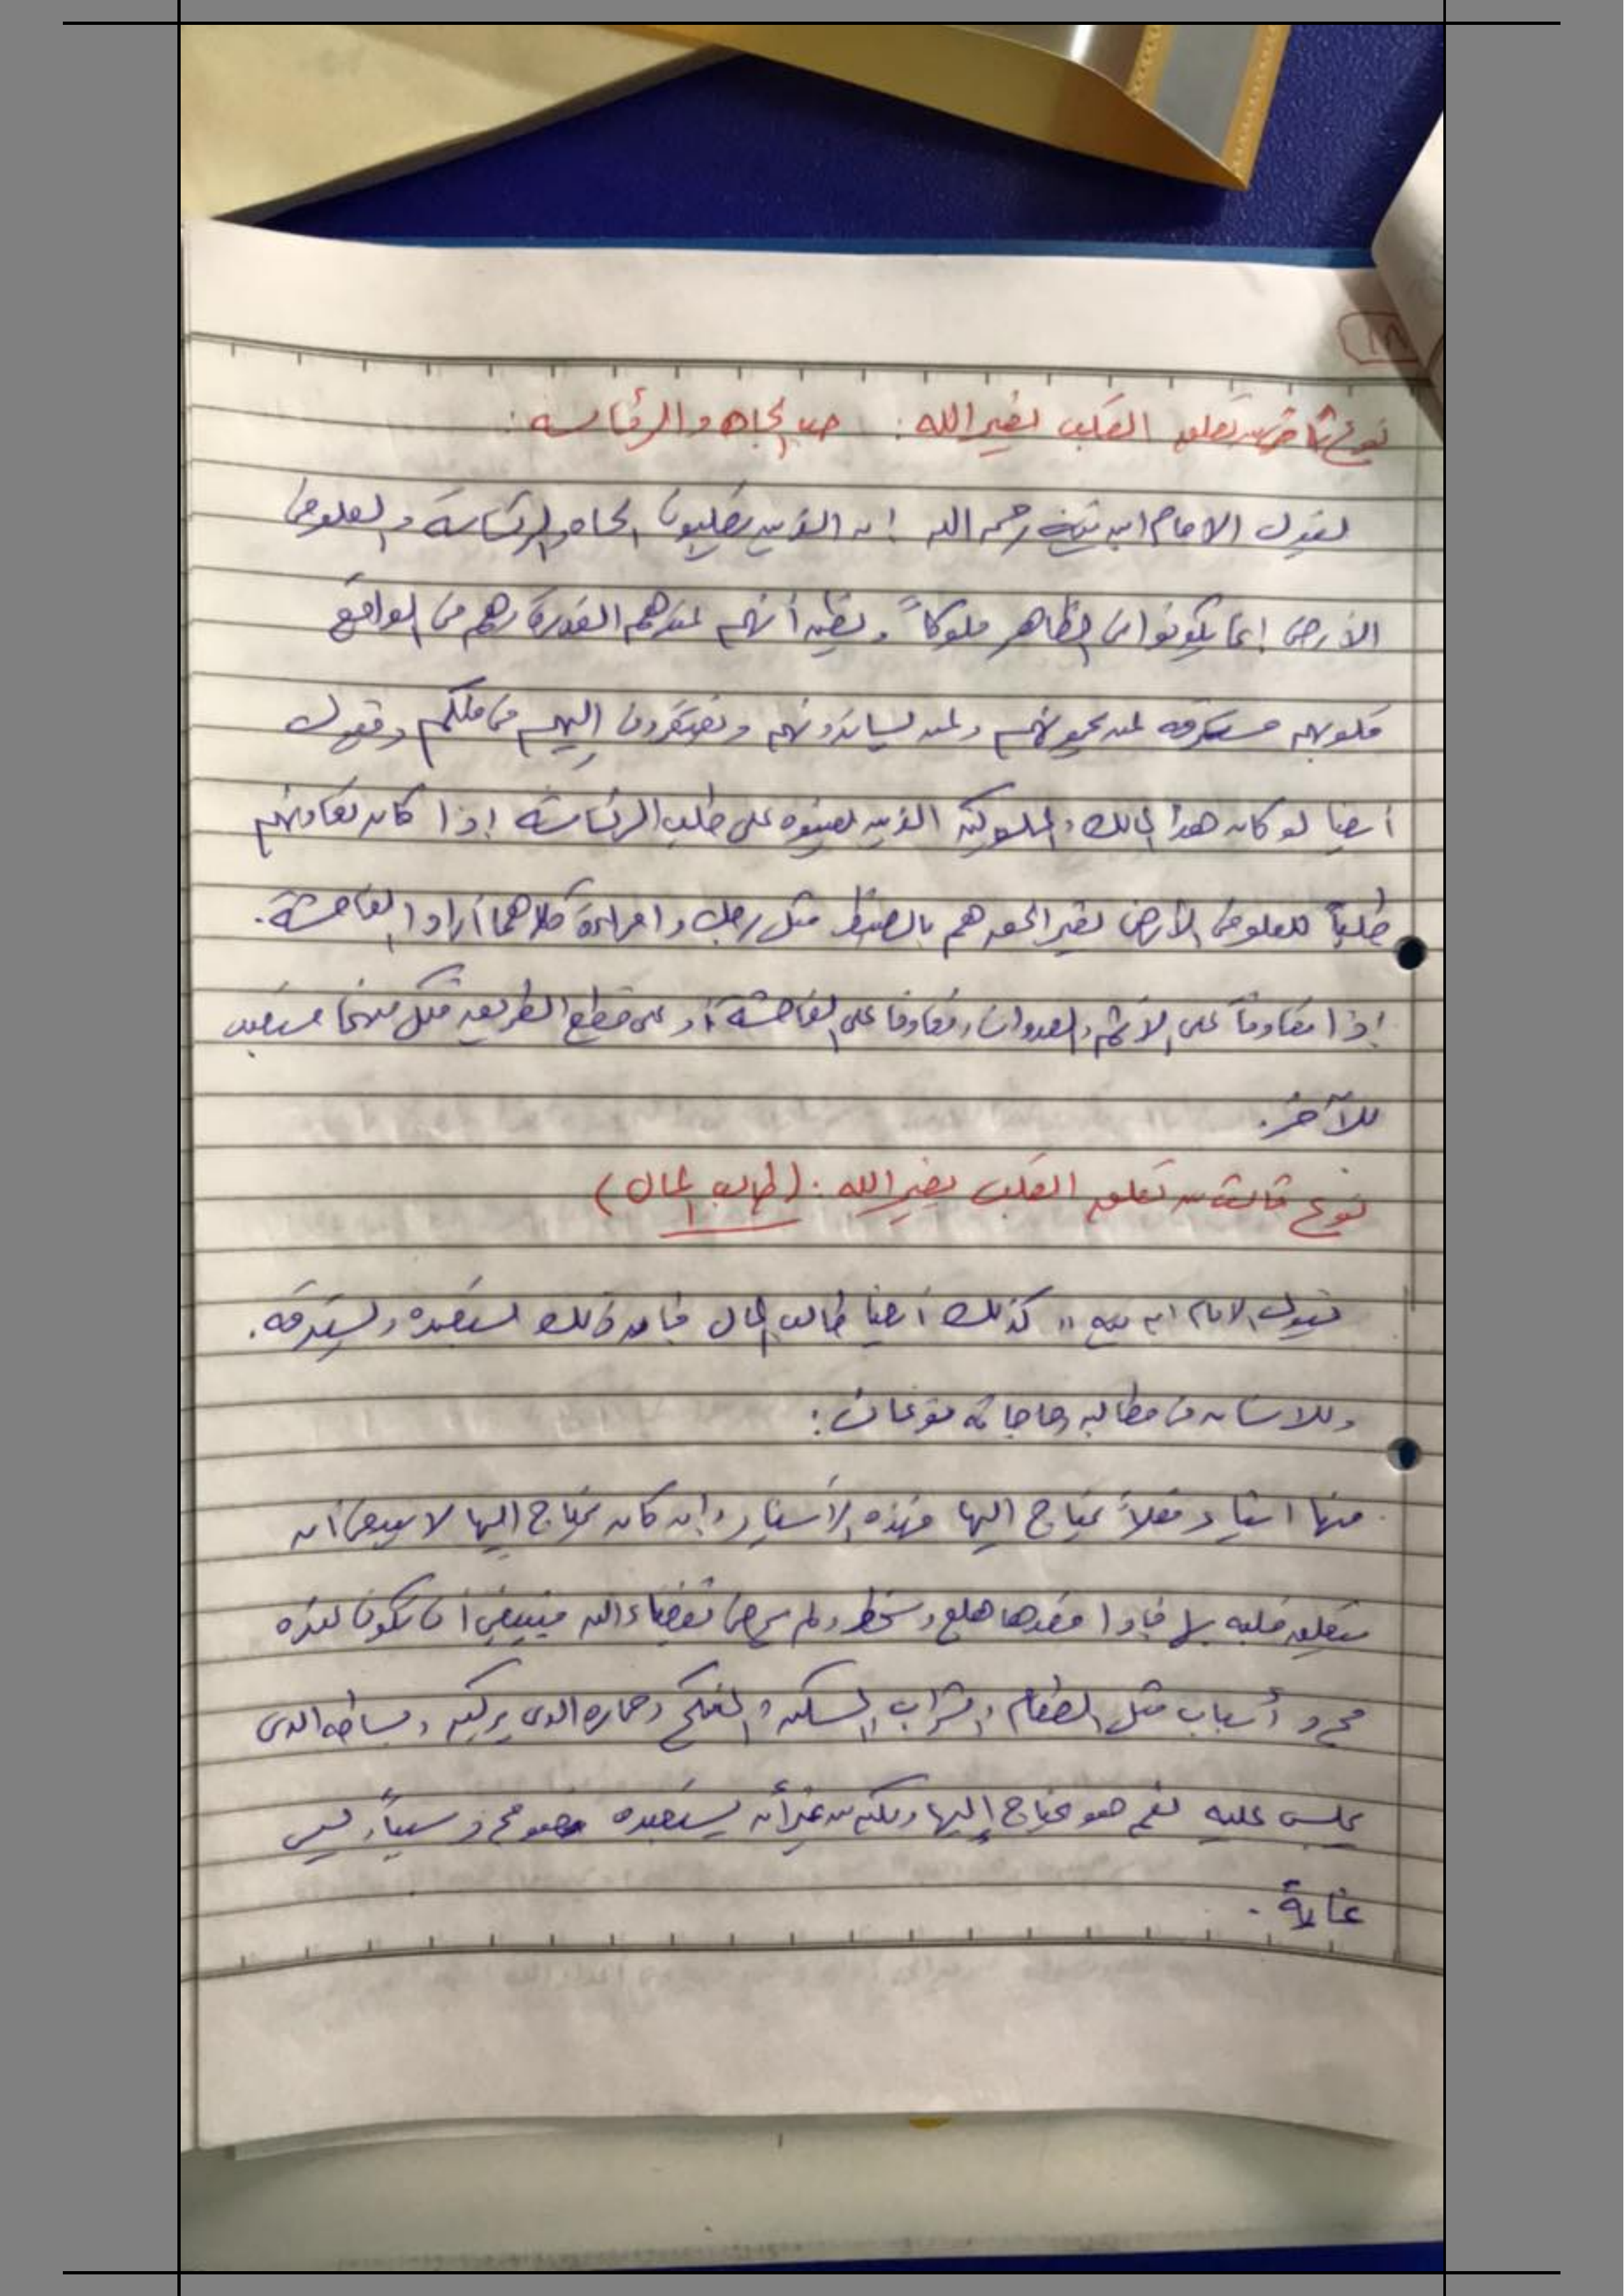 ١٨
نوع ثاني من تعلق القلب لغير الله: حب الجاه والرئاسة:
يقول الامام ابن تيمية رحمه الله إن الذين يطلبون الجاه والرئاسة والعلو في
الأرض إنما يكونوا في الظاهر ملوكاً ويظن أنهم عندهم القدرة وهم في الواقع
قلوبهم مسترقه لمن يحبونهم ولمن يساندونهم ويفتقرون إليهم في ملكهم ويقول
أيضا لو كان هذا المالك والملوكية الذين يعينوه على طلب الرئاسة إذا كان تعاونهم
طلباً للعلو في الأرض بغير الحق هم بالضبط مثل رجل وامرأة كلاهما أرادا الفاحشة.
إذا تعاونا على الاثم والعدوان وتعاونا على الفاحشة أو على قطع الطريق فكل منهما مستعبد
للآخر.
نوع ثالث من تعلق القلب بغير الله: (طالب المال)
فيقول الامام ابن تيمية " كذلك أيضا طالب المال فإن ذلك يستعبده ويسترقه.
وللانسان في مطالبه وحاجاته نوعان:
منها اشياء فعلاً يحتاج اليها فهذه الأشياء وإن كان يحتاج اليها لا ينبغي ان
يتعلق قلبه بها فإذا فقدها هلع وسخط ولم يرضى بقضاء الله فينبغي أن تكون هذه
مجرد أسباب مثل الطعام والشراب والمسكن والمنكح وحماره الذي يركبه وبساطه الذي
يجلس عليه نعم هو يحتاج إليها ولكن من غير أن يستعبده فهو مجرد سبباً وليس
غاية.